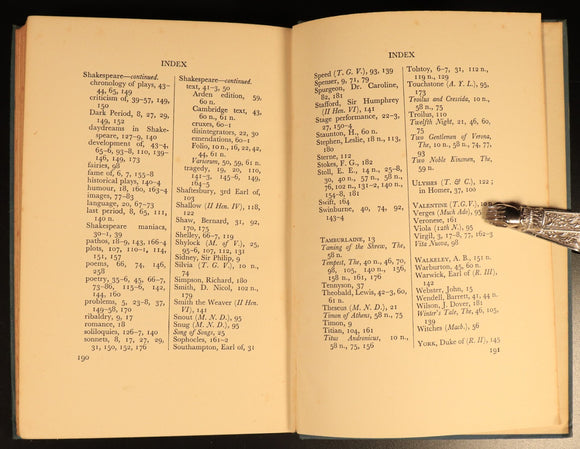 INDEX
Shakespeare—continued.
chronology of plays, 43–
44, 65, 149
criticism of, 39–57, 149,
150
Dark Period, 8, 27, 29,
149
daydreams in Shake-
speare, 127–9, 140
development of, 43–4,
65–6, 93–8, 110, 139–
146, 149, 173
fairies, 98
fame of, 6, 7, 155–8
historical plays, 140–4
humour, 18, 160, 163–4
images, 77–83
language, 20, 67–73
last period, 8, 65, 111,
140 n.
Shakespeare maniacs,
30–1, 39
pathos, 18–9, 143, 166–4
plots, 107, 151, 156–7,
175
poems, 66, 74, 146,
258
poetry, 35–6, 45, 66–7,
73–86, 113–8, 142,
144, 160
problems, 5, 23–8, 37,
149–58, 170
ribaldry, 9, 17
romance, 18
soliloquies, 126–7, 140
sonnets, 8, 17, 27, 29,
31, 150, 152, 176
190
Shakespeare—continued.
text, 41–3, 50
Arden edition, 59,
60 n.
Cambridge text, 43,
60 n., 61 n.
cruxes, 60–1
disintegrators, 22, 30
emendations, 60–1
Folio, 10 n., 16, 22, 42,
44, 60 n.
Variorum, 50, 59, 61 n.
tragedy, 19, 20, 110,
141–3, 145–6, 149,
164–5
Shaftesbury, 3rd Earl of,
103
Shallow (II Hen. IV), 118,
122
Shaw, Bernard, 31, 92,
170, 175
Shelley, 66–7, 119
Shylock (M. of V.), 25,
106–7, 111, 112 n., 131
Sidney, Sir Philip, 9
Silvia (T. G. V.), 10 n.,
74
Simpson, Richard, 180
Smith, D. Nicol, 102 n.,
179
Smith the Weaver (II Hen.
VI), 141
Snout (M. N. D.), 95
Snug (M. N. D.), 95
Song of Songs, 25
Sophocles, 161–2
Southampton, Earl of, 31
INDEX
Speed (T. G. V.), 93, 139
Spenser, 9, 71, 79
Spurgeon, Dr. Caroline,
82, 181
Stafford, Sir Humphrey
(II Hen. VI), 141
Stage performance, 22–3,
27, 150–4
Staunton, H., 60 n.
Stephen, Leslie, 18 n., 113,
180
Sterne, 112
Stokes, F. G., 182
Stoll, E. E., 14 n., 25–8,
30, 40 n., 57 n., 58 n.,
76, 102 n., 131–2, 140 n.,
154–8, 181
Swift, 164
Swinburne, 40, 74, 92,
143–4
TAMBURLAINE, 13
Taming of the Shrew, The,
58 n.
Tempest, The, 40 n., 46, 70,
98, 105, 140 n., 156,
158, 160, 181
Tennyson, 37
Theobald, Lewis, 42–3, 60,
61 n.
Theseus (M. N. D.), 21
Timon of Athens, 58 n., 75
Timon, 9
Titian, 104, 161
Titus Andronicus, 10 n.,
58 n., 75, 156
Tolstoy, 6–7, 31, 112 n.,
119 n., 129
Touchstone (A. Y. L.), 95,
173
Troilus and Cressida, 10 n.,
58 n., 75
Troilus, 110
Twelfth Night, 21, 46, 60,
75
Two Gentlemen of Verona,
The, 10 n., 58 n., 74, 77,
93
Two Noble Kinsmen, The,
59 n.
ULYSSES (T. & C.), 122;
in Homer, 37, 100
VALENTINE (T. G. V.),
Verges (Much Ado), 95
Viola (12th N.),
Virgil, 3, 17–8, 77, 162–3
Vita Nuova, 98
WALKELEY, A. B., 151 n.
Warburton, 45, 60 n.
Warwick, Earl of (R. III),
142
Webster, John, 15
Wendell, Barrett, 41, 44 n.
Wilson, J. Dover, 181
Winter's Tale, The, 46, 105,
139
Witches (Mach.), 56
YORK, Duke of (R. II), 145
191